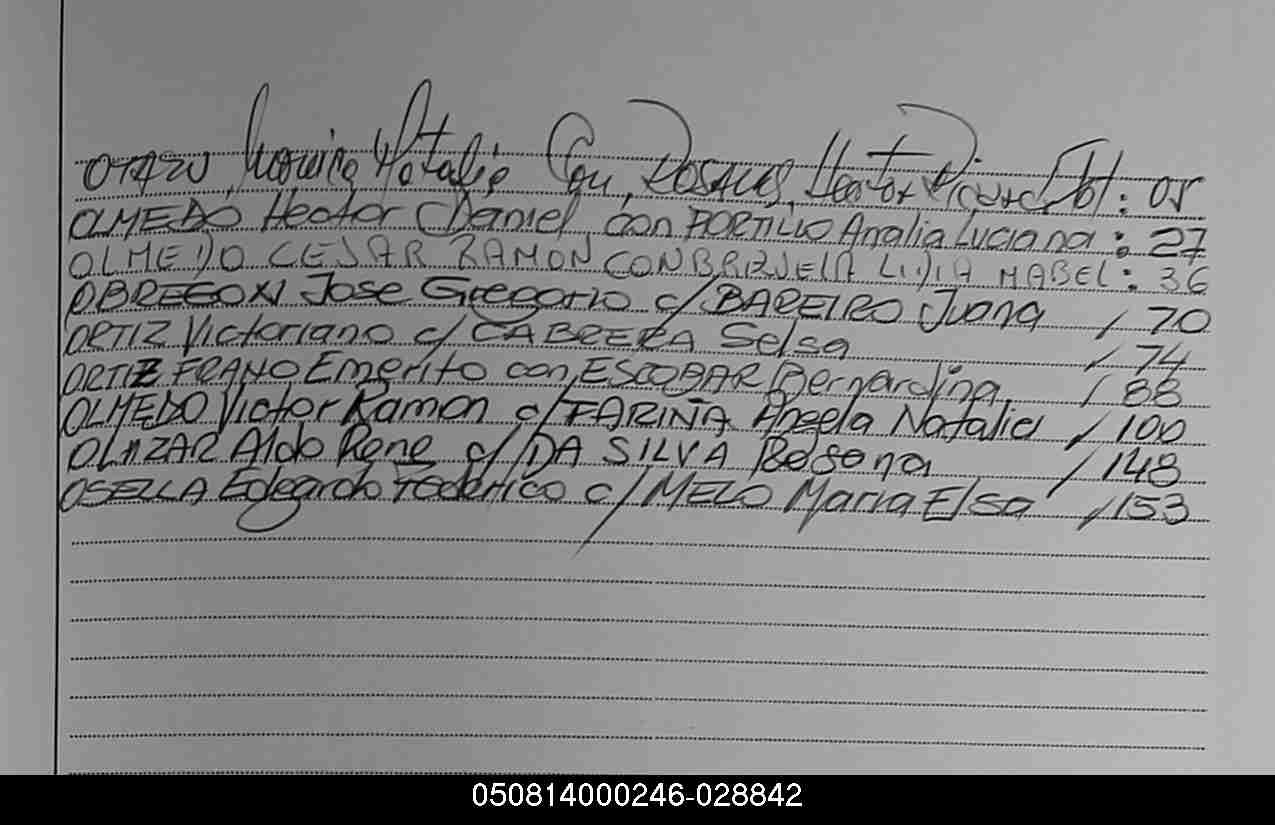 OTAZU Natalia Con ROSALES, Hector
OLMEDO Hector Daniel con PORTILLO Analia Luciana : 27
OLMEDO CESAR RAMON CON BRIZUELA LIDIA MABEL : 36
OBREGON Jose Gregorio c/ BAREIRO Juana / 70
ORTIZ Victoriano c/ CABRERA Selsa / 74
ORTIZ FRANO Emerito con ESCOBAR Bernardina / 88
OLMEDO Victor Ramon c/ FARIÑA Angela Natalia / 100
OLAZAR Aldo Rene c/ DA SILVA / 148
OSELLA Edegardo Federico c/ MELO Maria Elsa / 153
050814000246-028842